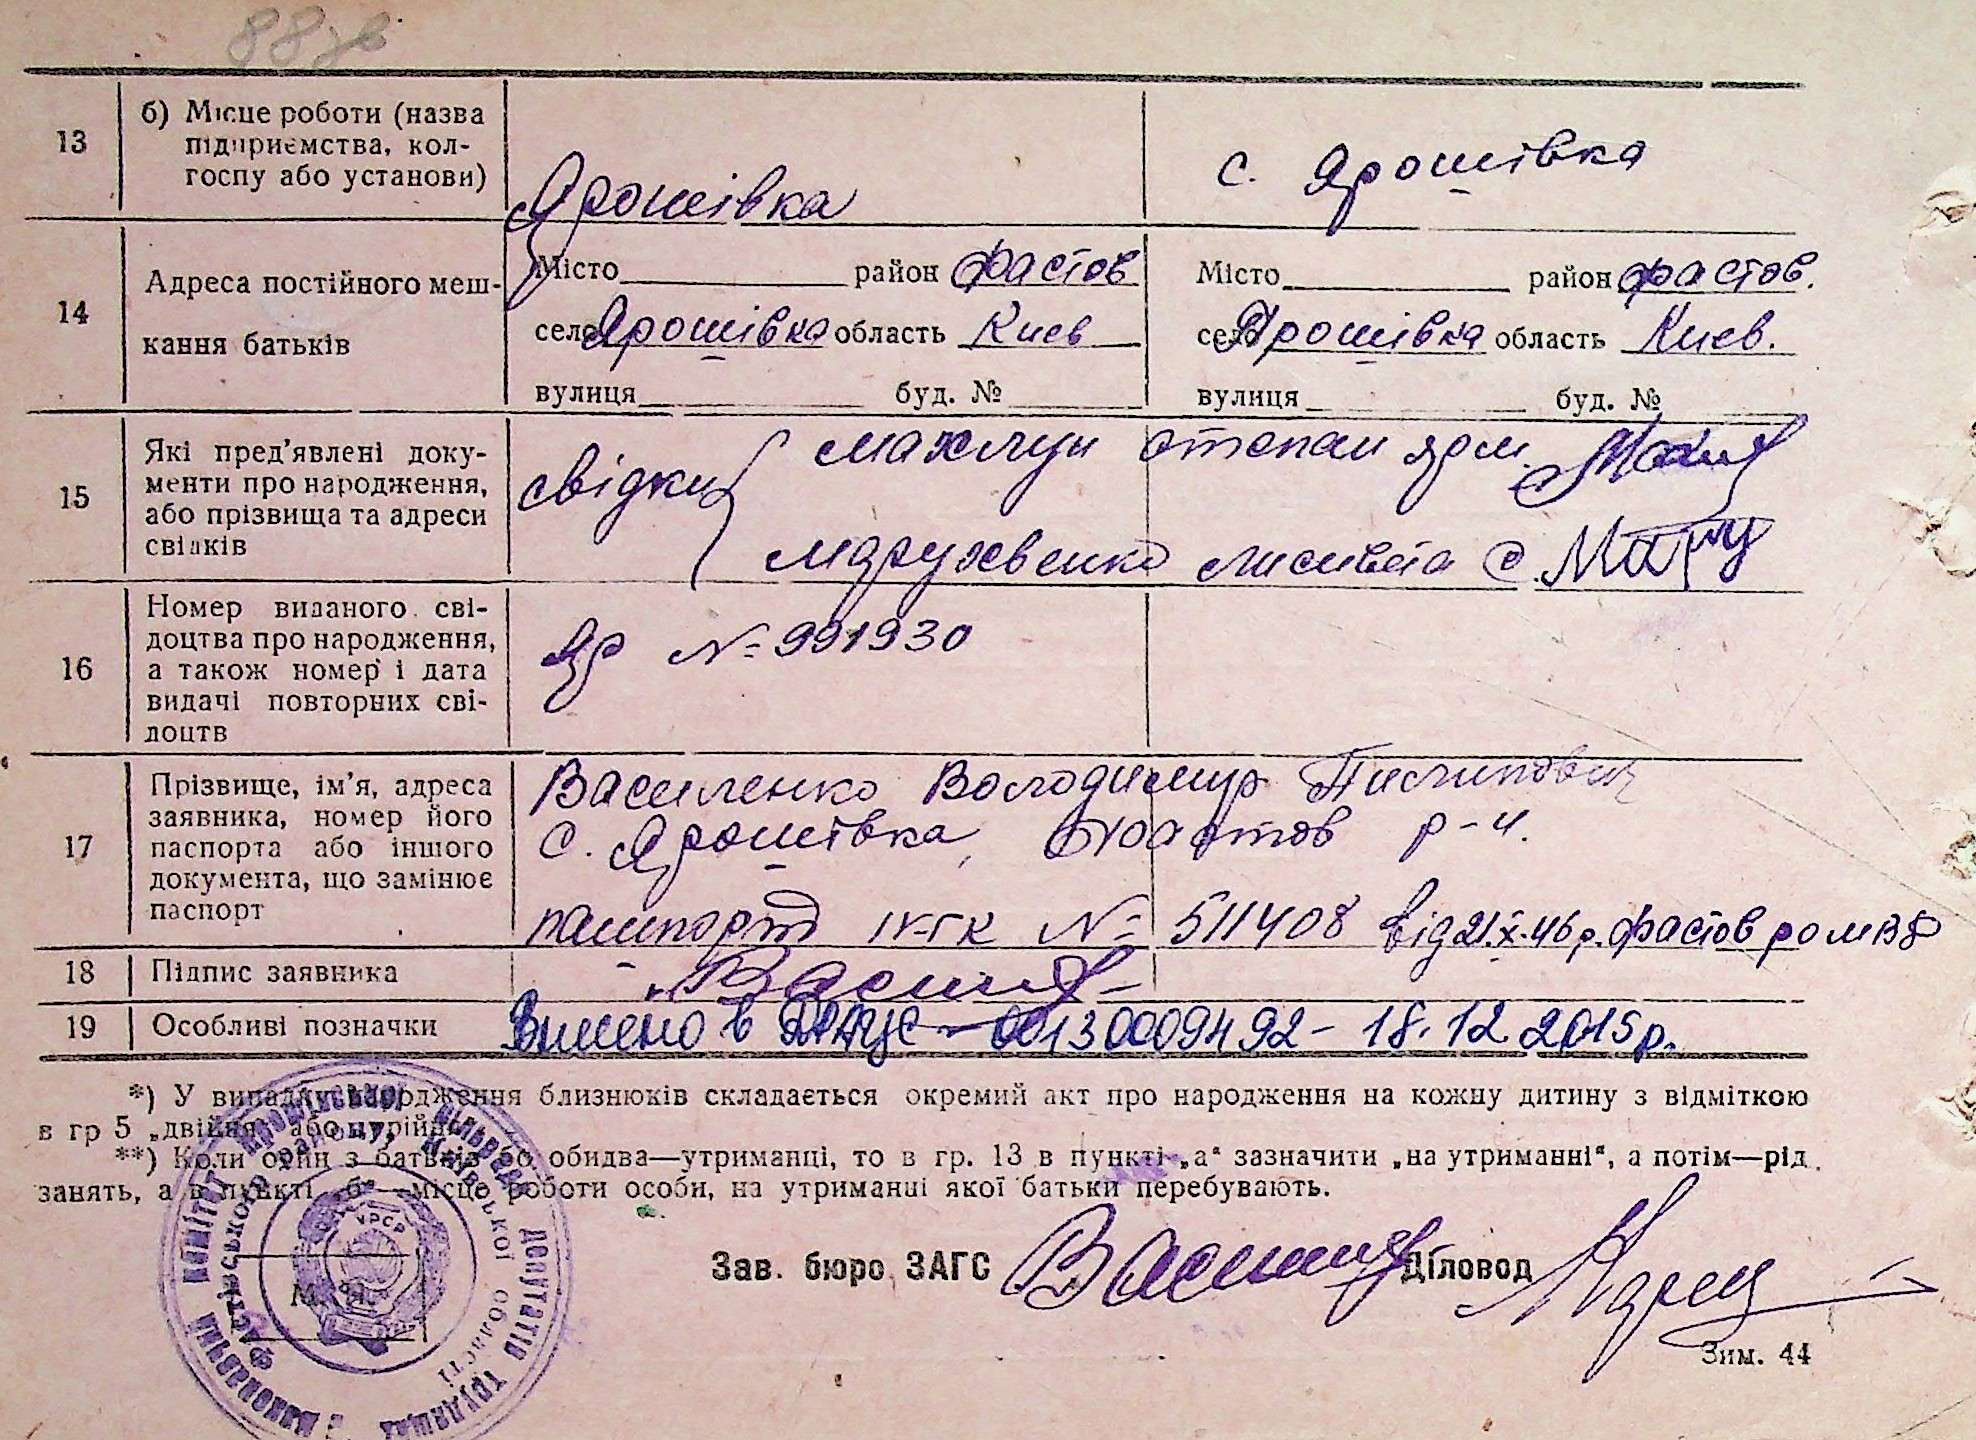 88 зв
13
б) Місце роботи (назва
підприємства, кол-
госпу або установи)
Ярошівка
с. Ярошівка
14
Адреса постійного меш-
кання батьків
Місто район Фастов
село Ярошівка область Киев
вулиця буд. №
Місто район Фастов.
село Ярошівка область Киев.
вулиця буд. №
15
Які пред'явлені доку-
менти про народження,
або прізвища та адреси
свідків
свідки
Степан
16
Номер виданого сві-
доцтва про народження,
а також номер і дата
видачі повторних сві-
доцтв
ЯР № 991930
17
Прізвище, ім'я, адреса
заявника, номер його
паспорта або іншого
документа, що замінює
паспорт
Василенко Володимир Пилипович
с. Ярошівка, Фастов р-н.
пашпорт IV-ГК № 511408 від 21.X.46 р. Фастов
18
Підпис заявника
19
Особливі позначки
Внесено в ДРАЦС - 00130009492 - 18.12.2015р.
*) У випадку народження близнюків складається окремий акт про народження на кожну дитину з відміткою
в гр 5 „двійня" або трійня
**) Коли один з батьків або обидва—утриманці, то в гр. 13 в пункті „а" зазначити „на утриманні", а потім—рід
занять, а в пункті „б"—місце роботи особи, на утриманні якої батьки перебувають.
УРСР
М. П.
Виконавчий комітет Ярошівської сільради депутатів трудящих
Фастівського району, Київської області
Зав. бюро ЗАГС
Діловод
Зим. 44